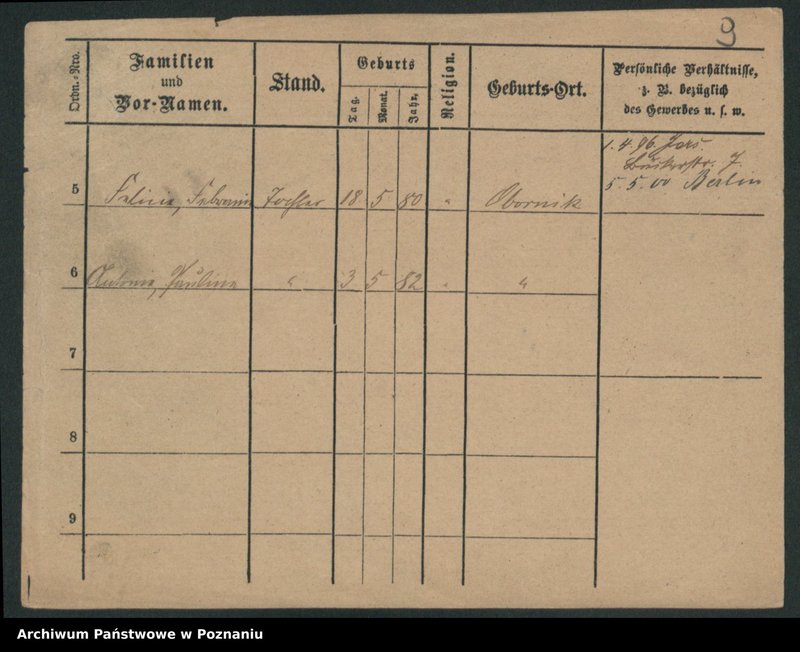 9
Ordn.-Nro.
Familien
und
Vor-Namen.
Stand.
Geburts
Tag.
Monat.
Jahr.
Religion.
Geburts-Ort.
Persönliche Verhältnisse,
z. B. bezüglich
des Gewerbes u. s. w.
1. 4. 96
7
5. 5. 00 Berlin
5 Tochter 18 5 80 " Obornik
6 Antonie, Paulina " 3 5 82 " "
7
8
9
Archiwum Państwowe w Poznaniu